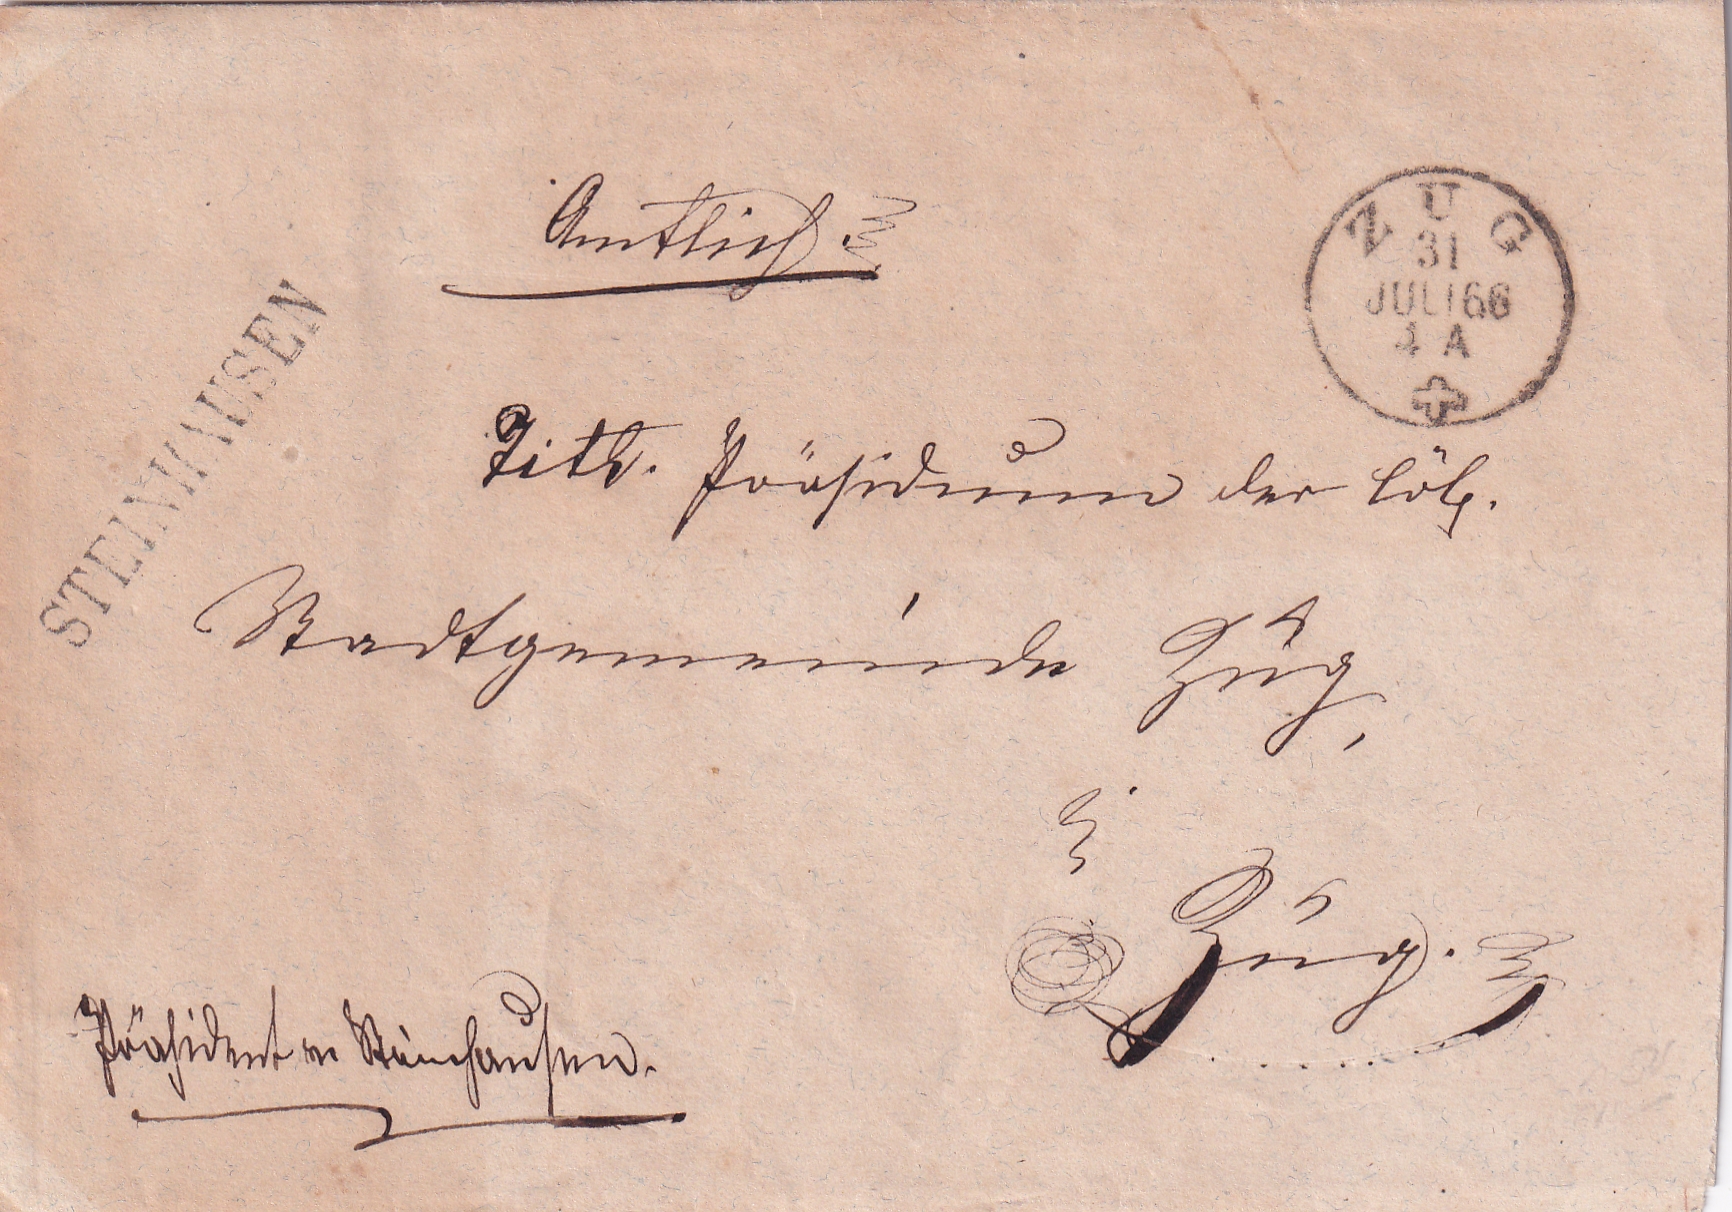 Amtlich.
ZUG
31
JULI 66
4 A
STEINHAUSEN
Titl. Präsidium der löbl.
Stadtgemeinde Zug,
Zug.
Präsident v. Steinhausen.